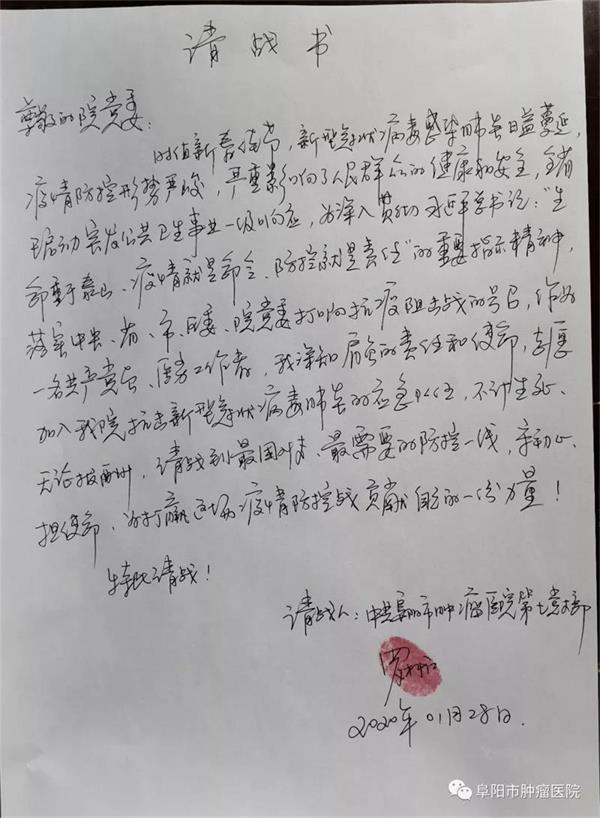 请战书
尊敬的院党委:
时值新春佳节,新型冠状病毒感染肺炎日益蔓延,
疫情防控形势严峻,严重影响了人民群众的健康和安全,全省
已启动突发公共卫生事件一级响应,为深入贯彻习近平总书记:“生
命重于泰山、疫情就是命令、防控就是责任”的重要指示精神,
落实中央、省、市、区委、院党委打响抗疫阻击战的号召,作为
一名共产党员、医务工作者,我深知肩负的责任和使命,志愿
加入我院抗击新型冠状病毒肺炎的应急队伍,不计生死、
无论报酬,请战到最困难、最需要的防控一线,守初心、
担使命,为打赢这场疫情防控战贡献自己的一份力量!
特此请战!
请战人:中共阜阳市肿瘤医院第七党支部
2020年01月28日.
阜阳市肿瘤医院